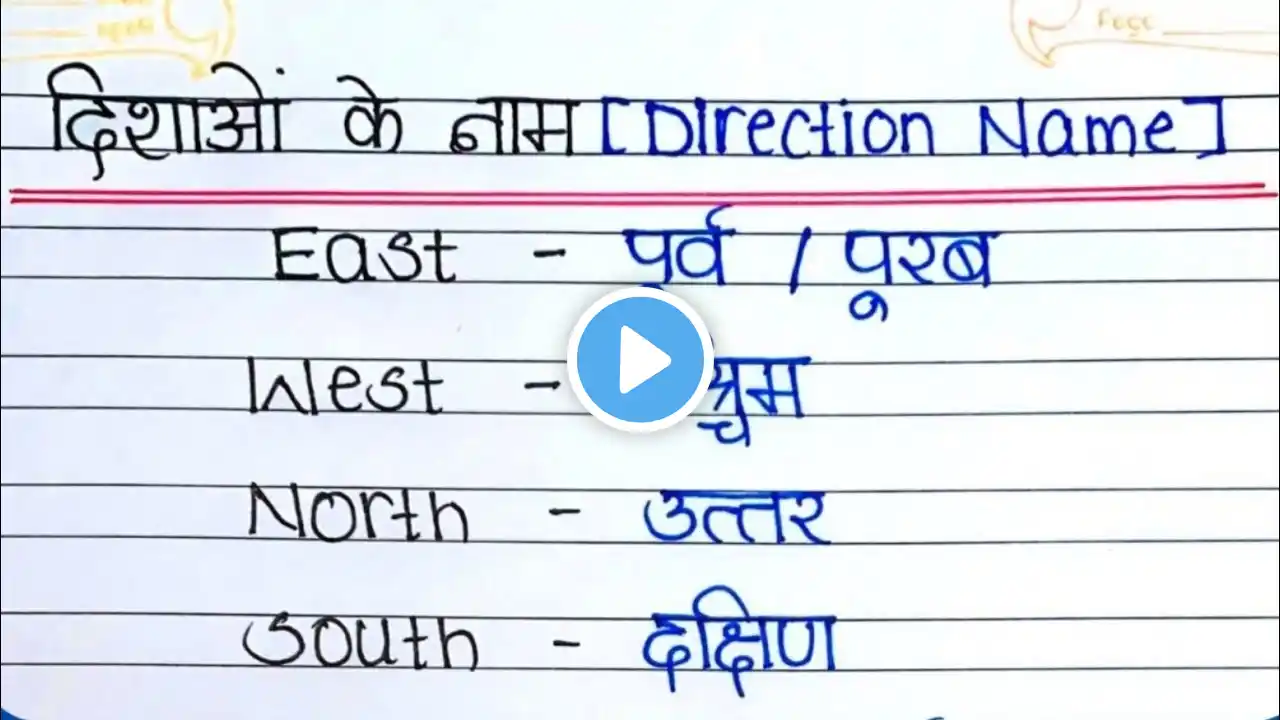 Page
दिशाओं के नाम [Direction Name]
East - पूर्व / पूरब
West -
North - उत्तर
South - दक्षिण